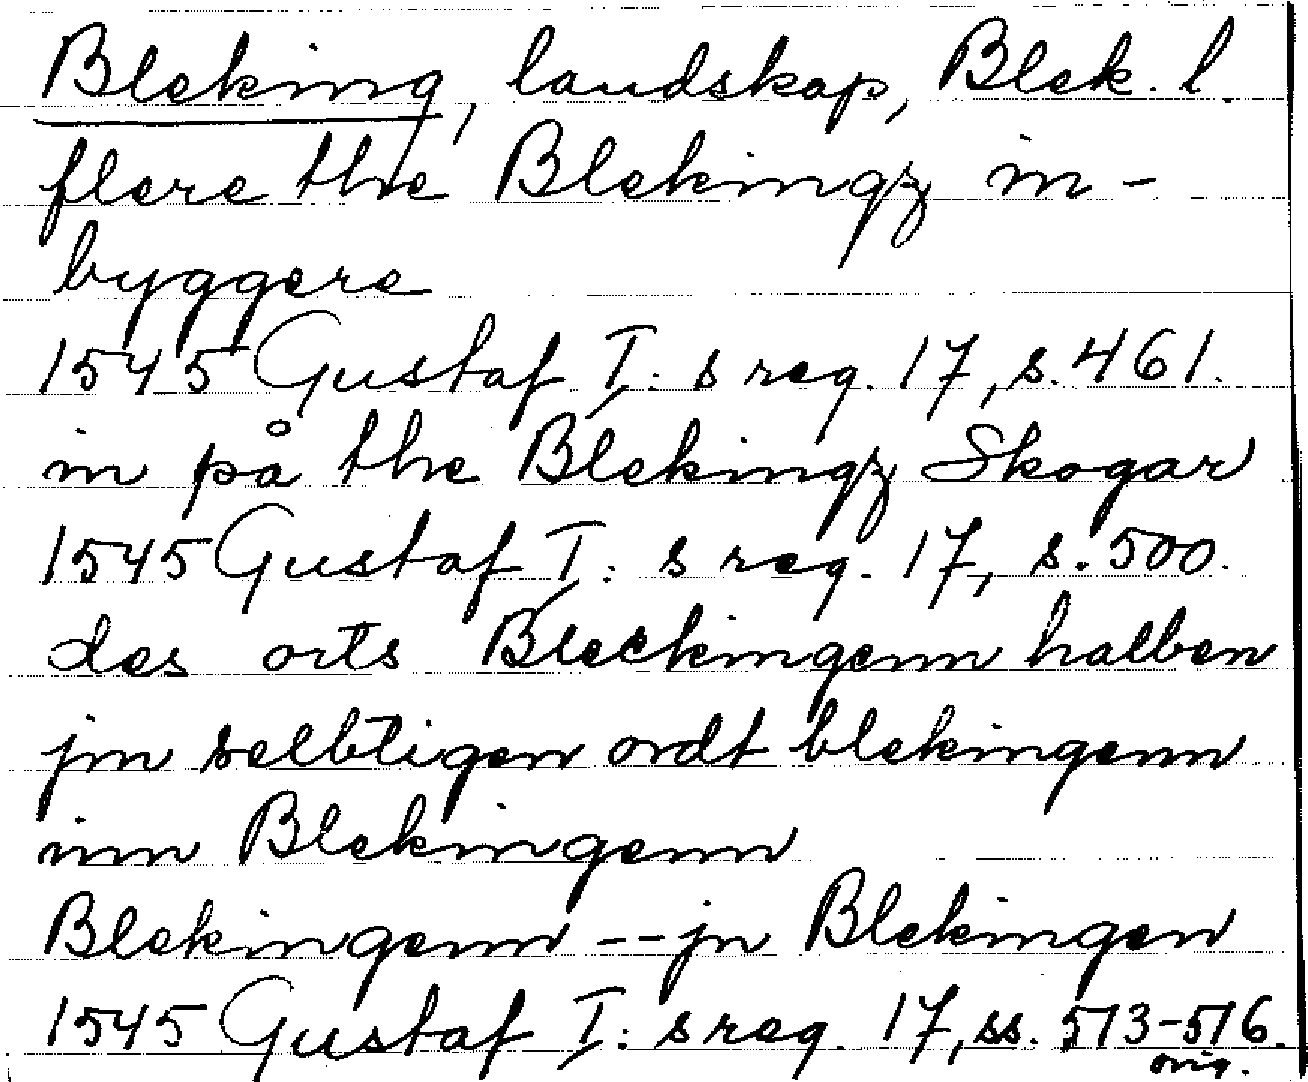 Bleking, landskap, Blek. l.
flere the Blekingz in-
byggere
1545 Gustaf I: s reg. 17, s. 461.
in på the Blekingz Skogar
1545 Gustaf I: s reg. 17, s. 500.
des orts Bleckingenn halben
jm selbtigen ordt blekingenn
inn Blekingenn
Blekingenn -- jn Blekingen
1545 Gustaf I: s reg. 17, ss. 513-516.
orig.